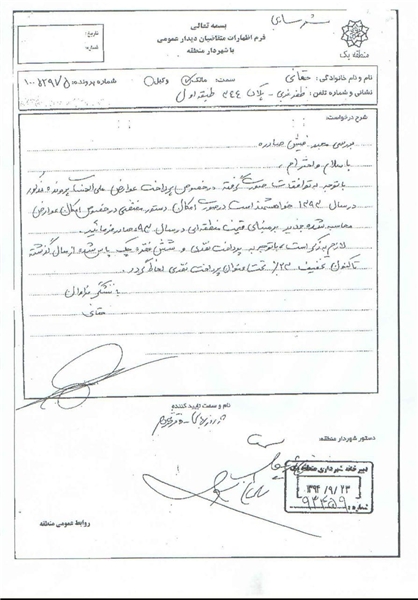 بسمه تعالی
فرم اظهارات متقاضیان دیدار عمومی
با شهردار منطقه
تاریخ:
شماره:
منطقه یک
نام و نام خانوادگی: حقانی سمت: مالک وکیل شماره پرونده:
نشانی و شماره تلفن: ظفر پلاک ۳۴۴ طبقه اول
شرح درخواست:
بررسی مجدد فیش صادره
با سلام و احترام،
با توجه به توافقات صورت گرفته در خصوص پرداخت عوارض پرونده مذکور
در سال ۱۳۹۳ خواهشمند است در صورت امکان دستور مقتضی در خصوص عوارض
محاسبه شده جدید بر مبنای قیمت منطقه‌ای در سال ۹۳ صادر فرمائید.
لازم به ذکر است با توجه به پرداخت نقدی و شش فقره چک پاس شده از سال گذشته
تاکنون تخفیف ۲۳٪ تحت عنوان پرداخت نقدی لحاظ گردد.
با تشکر فراوان
حقانی
نام و سمت تایید کننده
دستور شهردار منطقه:
دبیرخانه شهرداری منطقه یک
۱۳۹۴/۹/۲۳
شماره: ۹۳۴۵۹
روابط عمومی منطقه